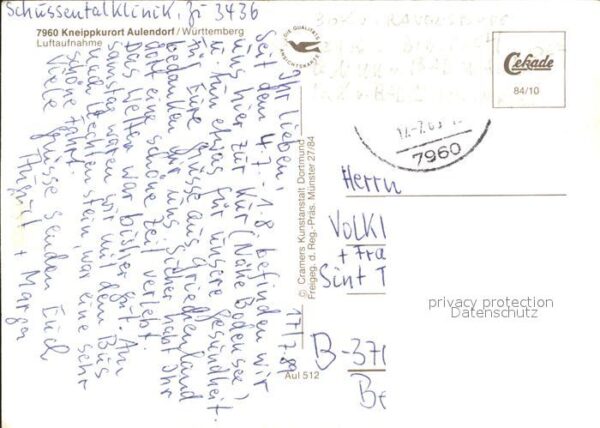 Schussentalklinik, Zi 3436
7960 Kneippkurort Aulendorf/Württemberg
Luftaufnahme
DIE QUALITÄTS
ANSICHTSKARTE
Cekade
84/10
7960
17/7.89
Ihr Lieben,
seit dem 4.7. - 1.8 befinden wir
uns hier zur Kur (Nähe Bodensee)
um etwas für unsere Gesundheit
zu tun. Für Eure Grüsse aus Griechenland
bedanken wir uns. Sicher habt Ihr
dort eine schöne Zeit verlebt.
Das Wetter war bisher gut. Am
Samstag waren wir mit dem Bus
nach Liechtenstein, war eine sehr
schöne Fahrt.
Viele Grüsse senden Euch
August + Marga
© Cramers Kunstanstalt Dortmund
Freigeg. d. Reg.-Präs. Münster 27/84
Aul 512
Herrn
VOLKI
+ Fra
Sint T
B-371
Be
privacy protection
Datenschutz